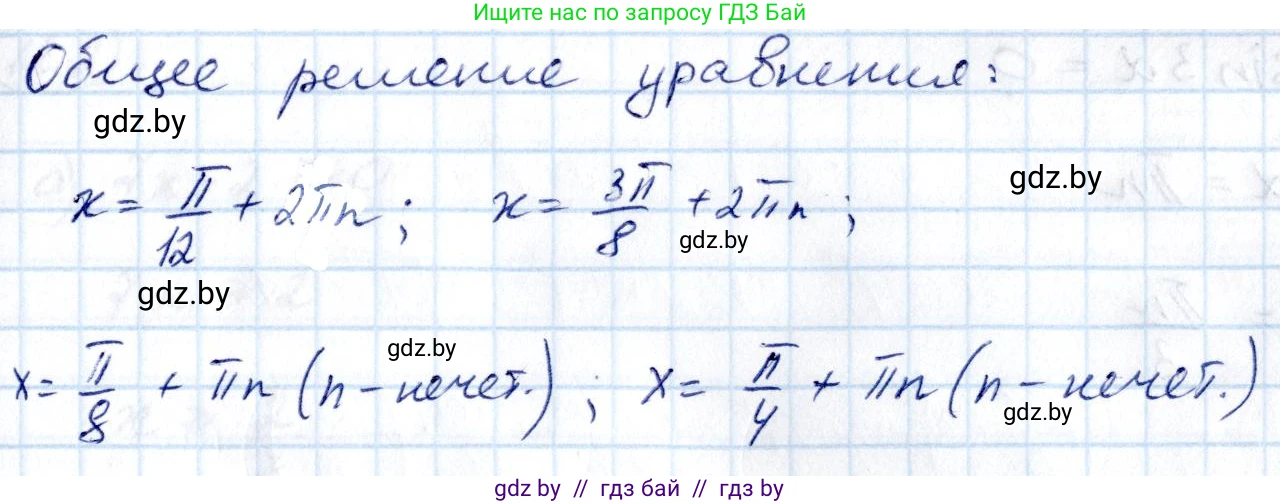 Ищите нас по запросу ГДЗ Бай
Общее решение уравнения:
gdz.by
x = π/12 + 2πn; x = 3π/8 + 2πn;
gdz.by
gdz.by
gdz.by
gdz.by
x = π/8 + πn (n - нечет.); x = π/4 + πn (n - нечет.)
gdz.by
gdz by // гдз бай // gdz by